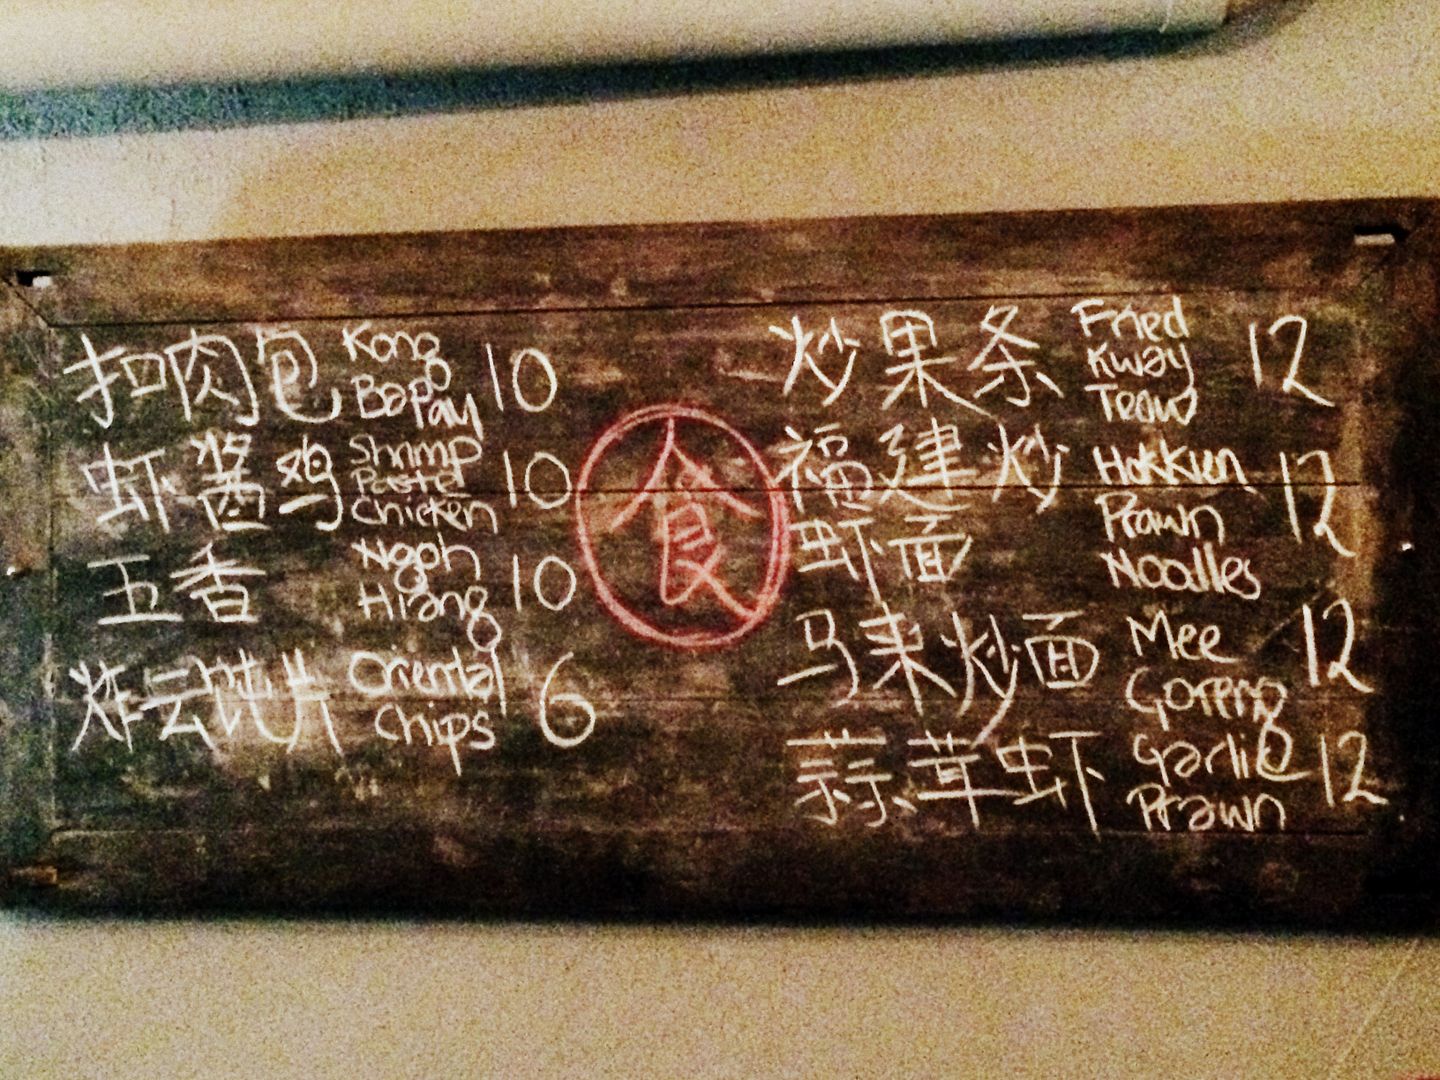 扣肉包 Kong 10
Bapau
虾酱鸡 Shrimp 10
Paste
Chicken
五香 Ngoh 10
Hiang
炸云吞片 Oriental 6
Chips
食
炒果条 Fried 12
Kway
Teow
福建炒 Hokkien 12
虾面 Prawn
Noodles
马来炒面 Mee 12
Goreng
蒜茸虾 Garlic 12
Prawn